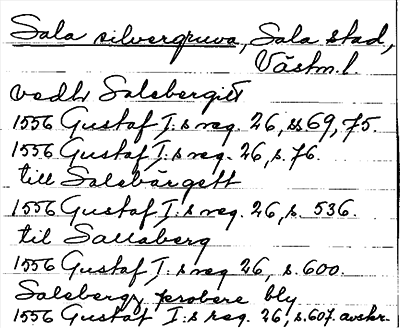 Sala silvergruva, Sala stad,
Västm. l.
vedh Salsbergit
1556 Gustaf I:s reg. 26, ss 69, 75.
1556 Gustaf I:s reg. 26, s. 76.
till Salsbärgett
1556 Gustaf I:s reg. 26, s. 536.
til Sallaberg
1556 Gustaf I:s reg 26, s. 600.
Salsbergz probere bly
1556 Gustaf I:s reg. 26, s. 607. avskr.